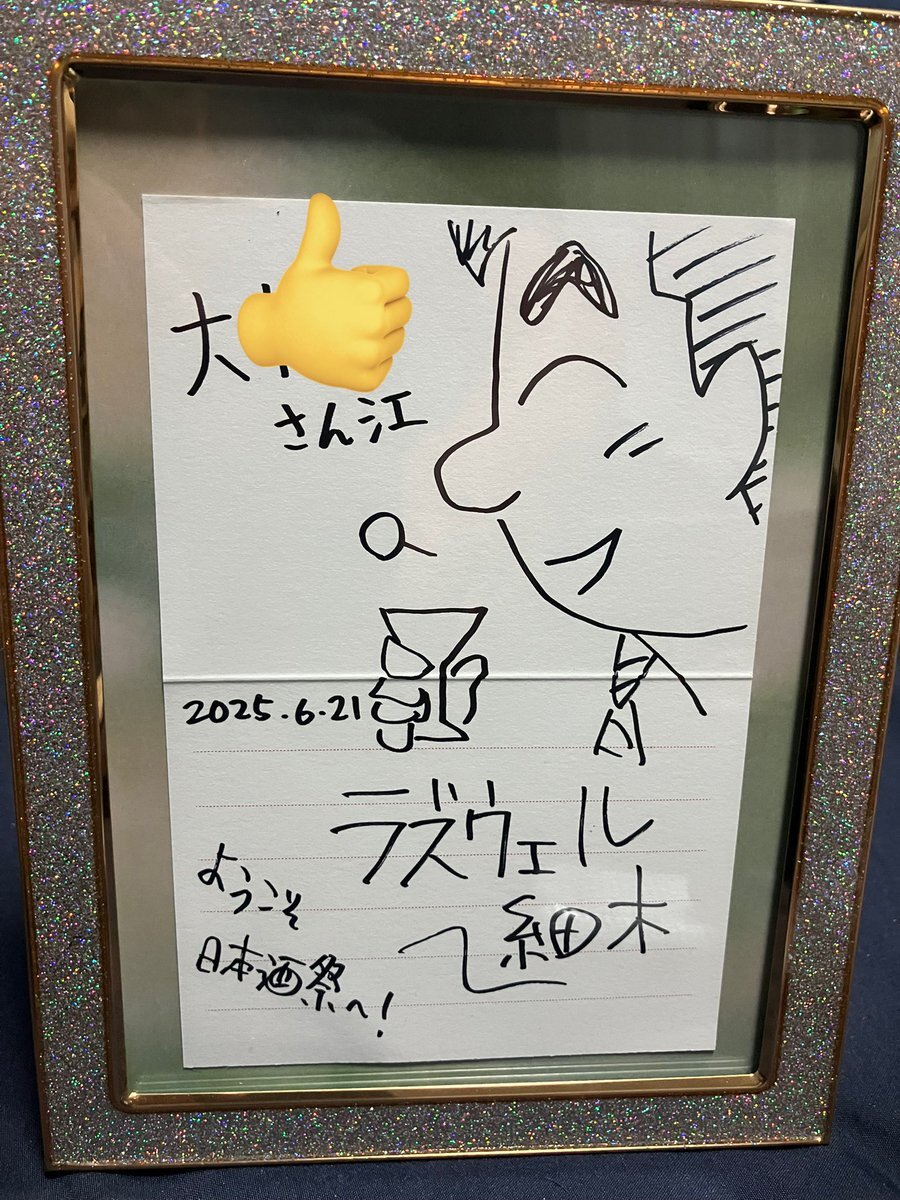 大
さん江
2025.6.21
ラズウェル
細木
ようこそ
日本酒祭へ!